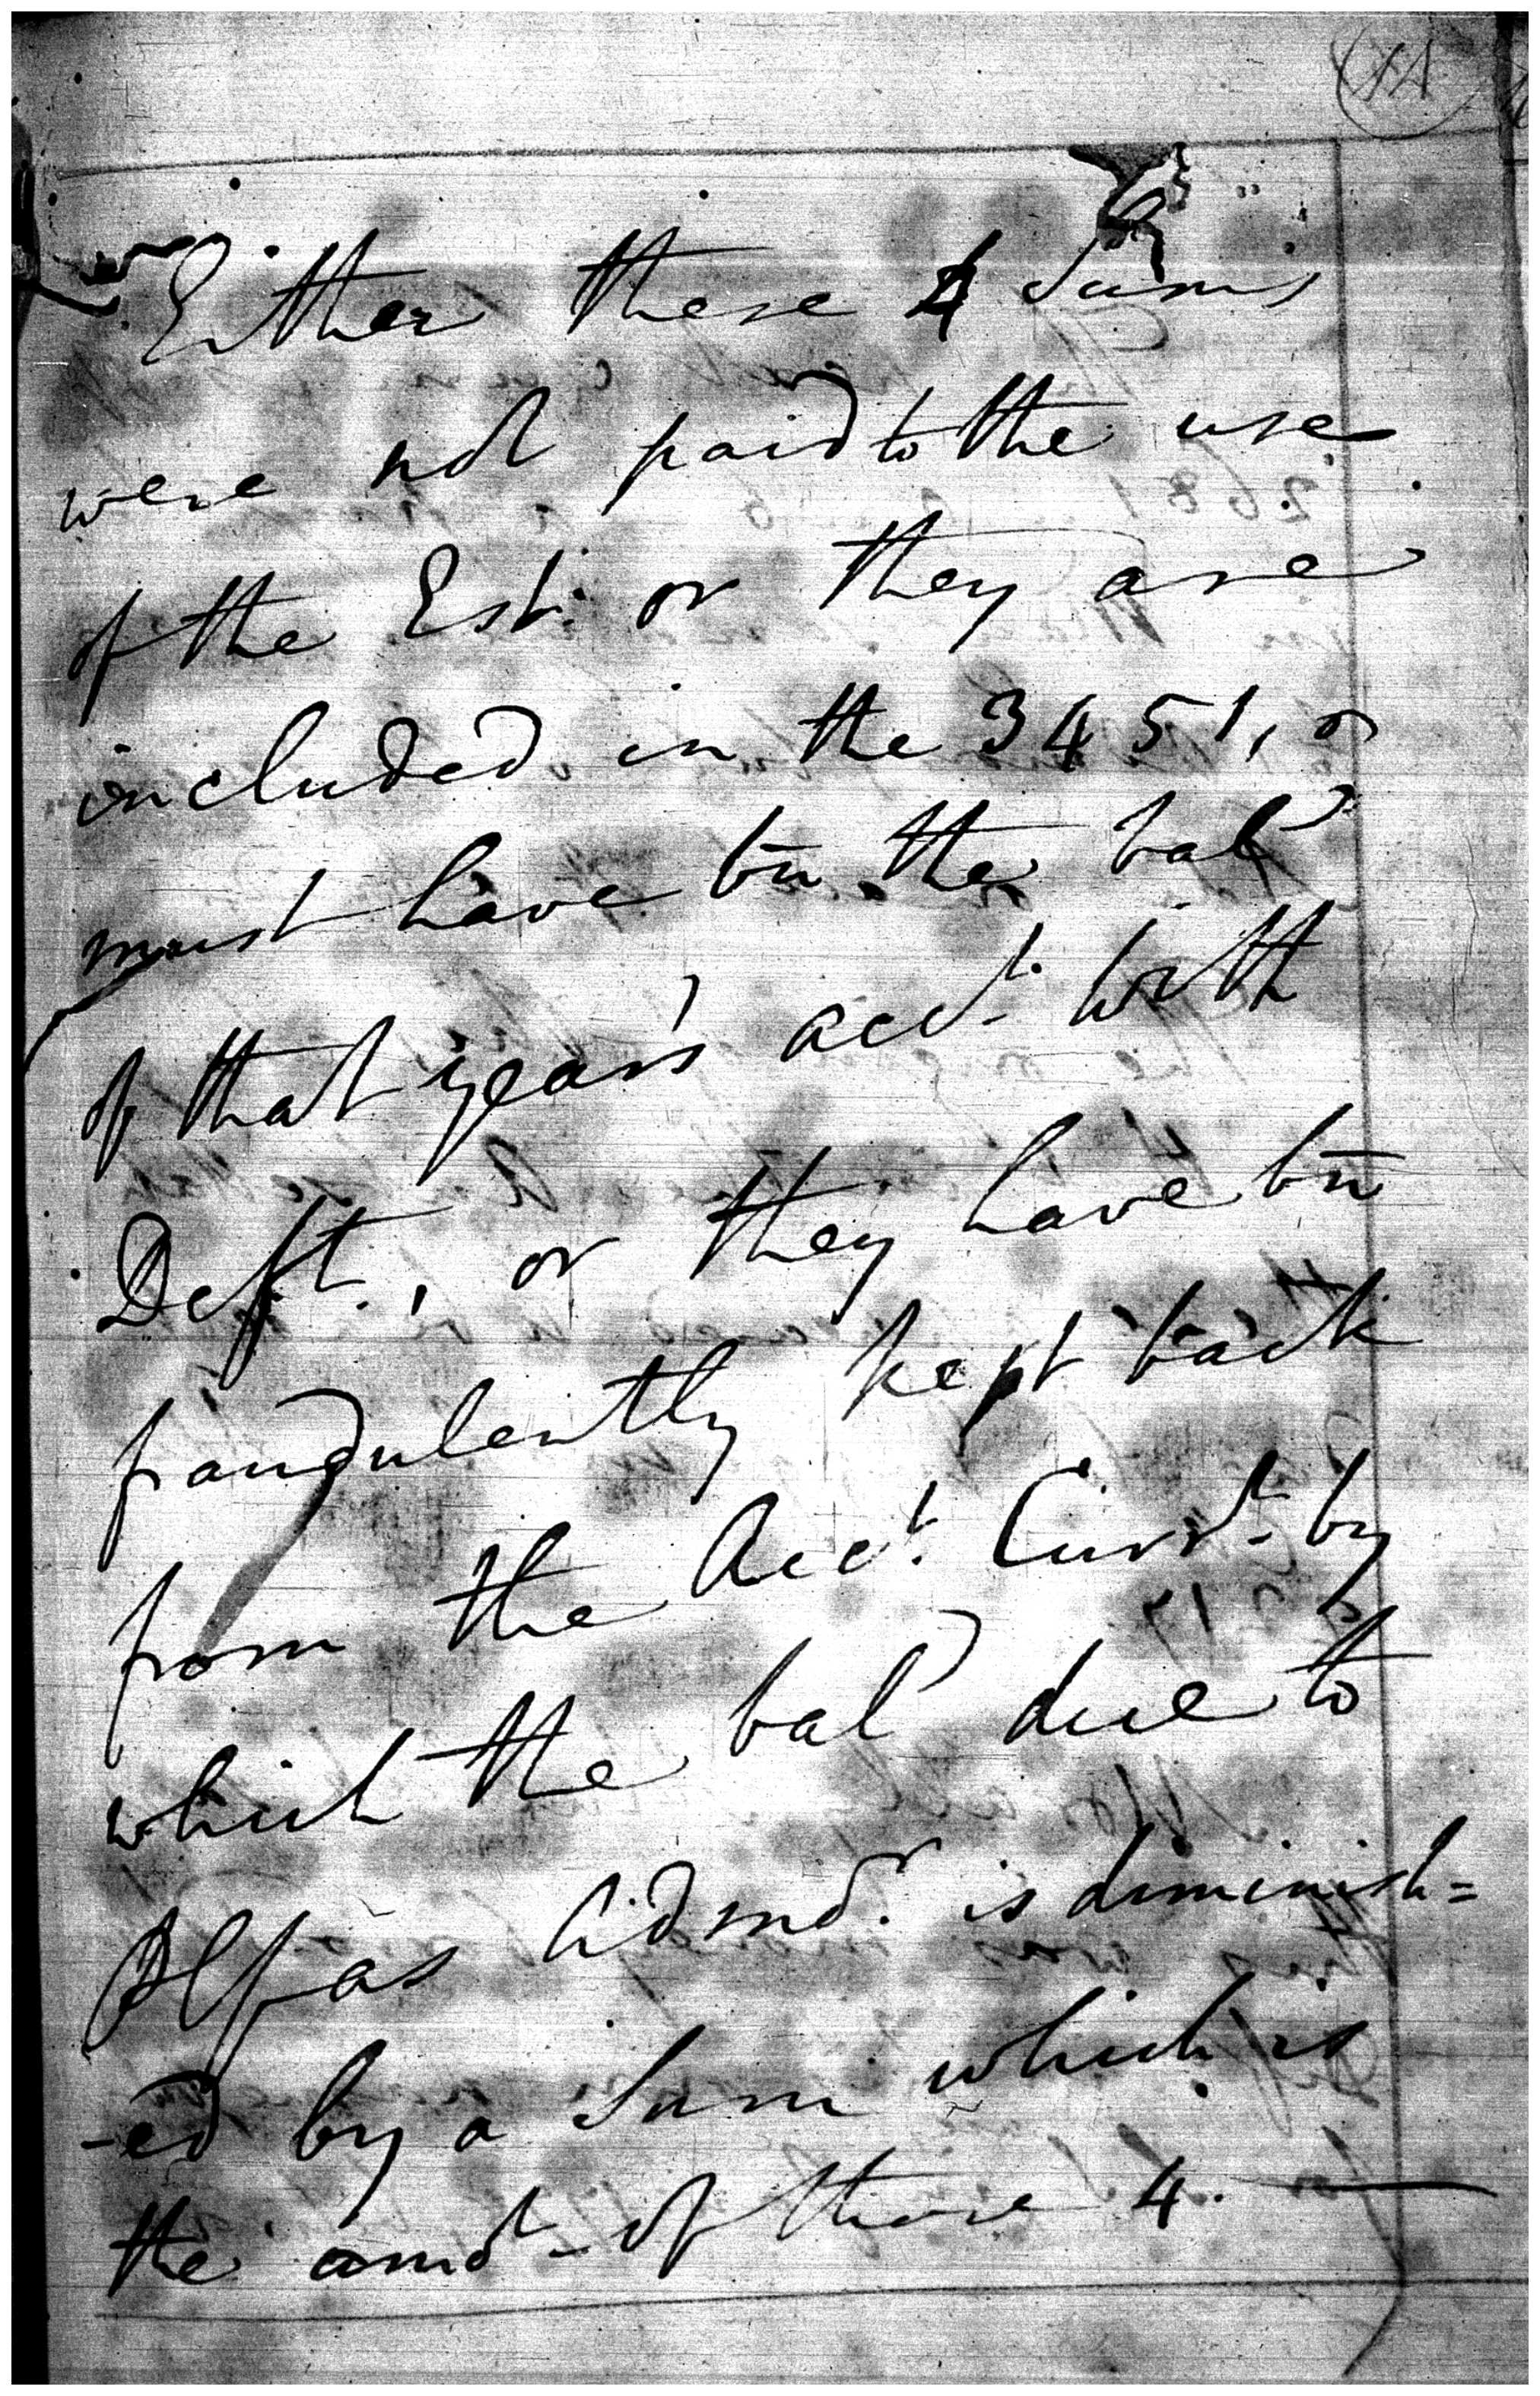 Either these 4 Sums
were not paid to the use
of the Est: or they are
included in the 3451, or
must have bn̄ the bal
of that year's acct. with
Deft., or they have bn̄
fraudulently kept back
from the Acct. Currt. by
which the bal due to
Plf as Admor. is diminish=
-ed by a Sum which is
the amt. of those 4. —